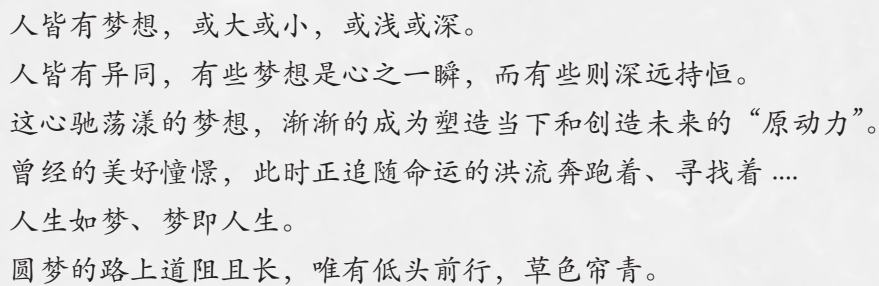 人皆有梦想，或大或小，或浅或深。
人皆有异同，有些梦想是心之一瞬，而有些则深远持恒。
这心驰荡漾的梦想，渐渐的成为塑造当下和创造未来的“原动力”。
曾经的美好憧憬，此时正追随命运的洪流奔跑着、寻找着 ....
人生如梦、梦即人生。
圆梦的路上道阻且长，唯有低头前行，草色帘青。